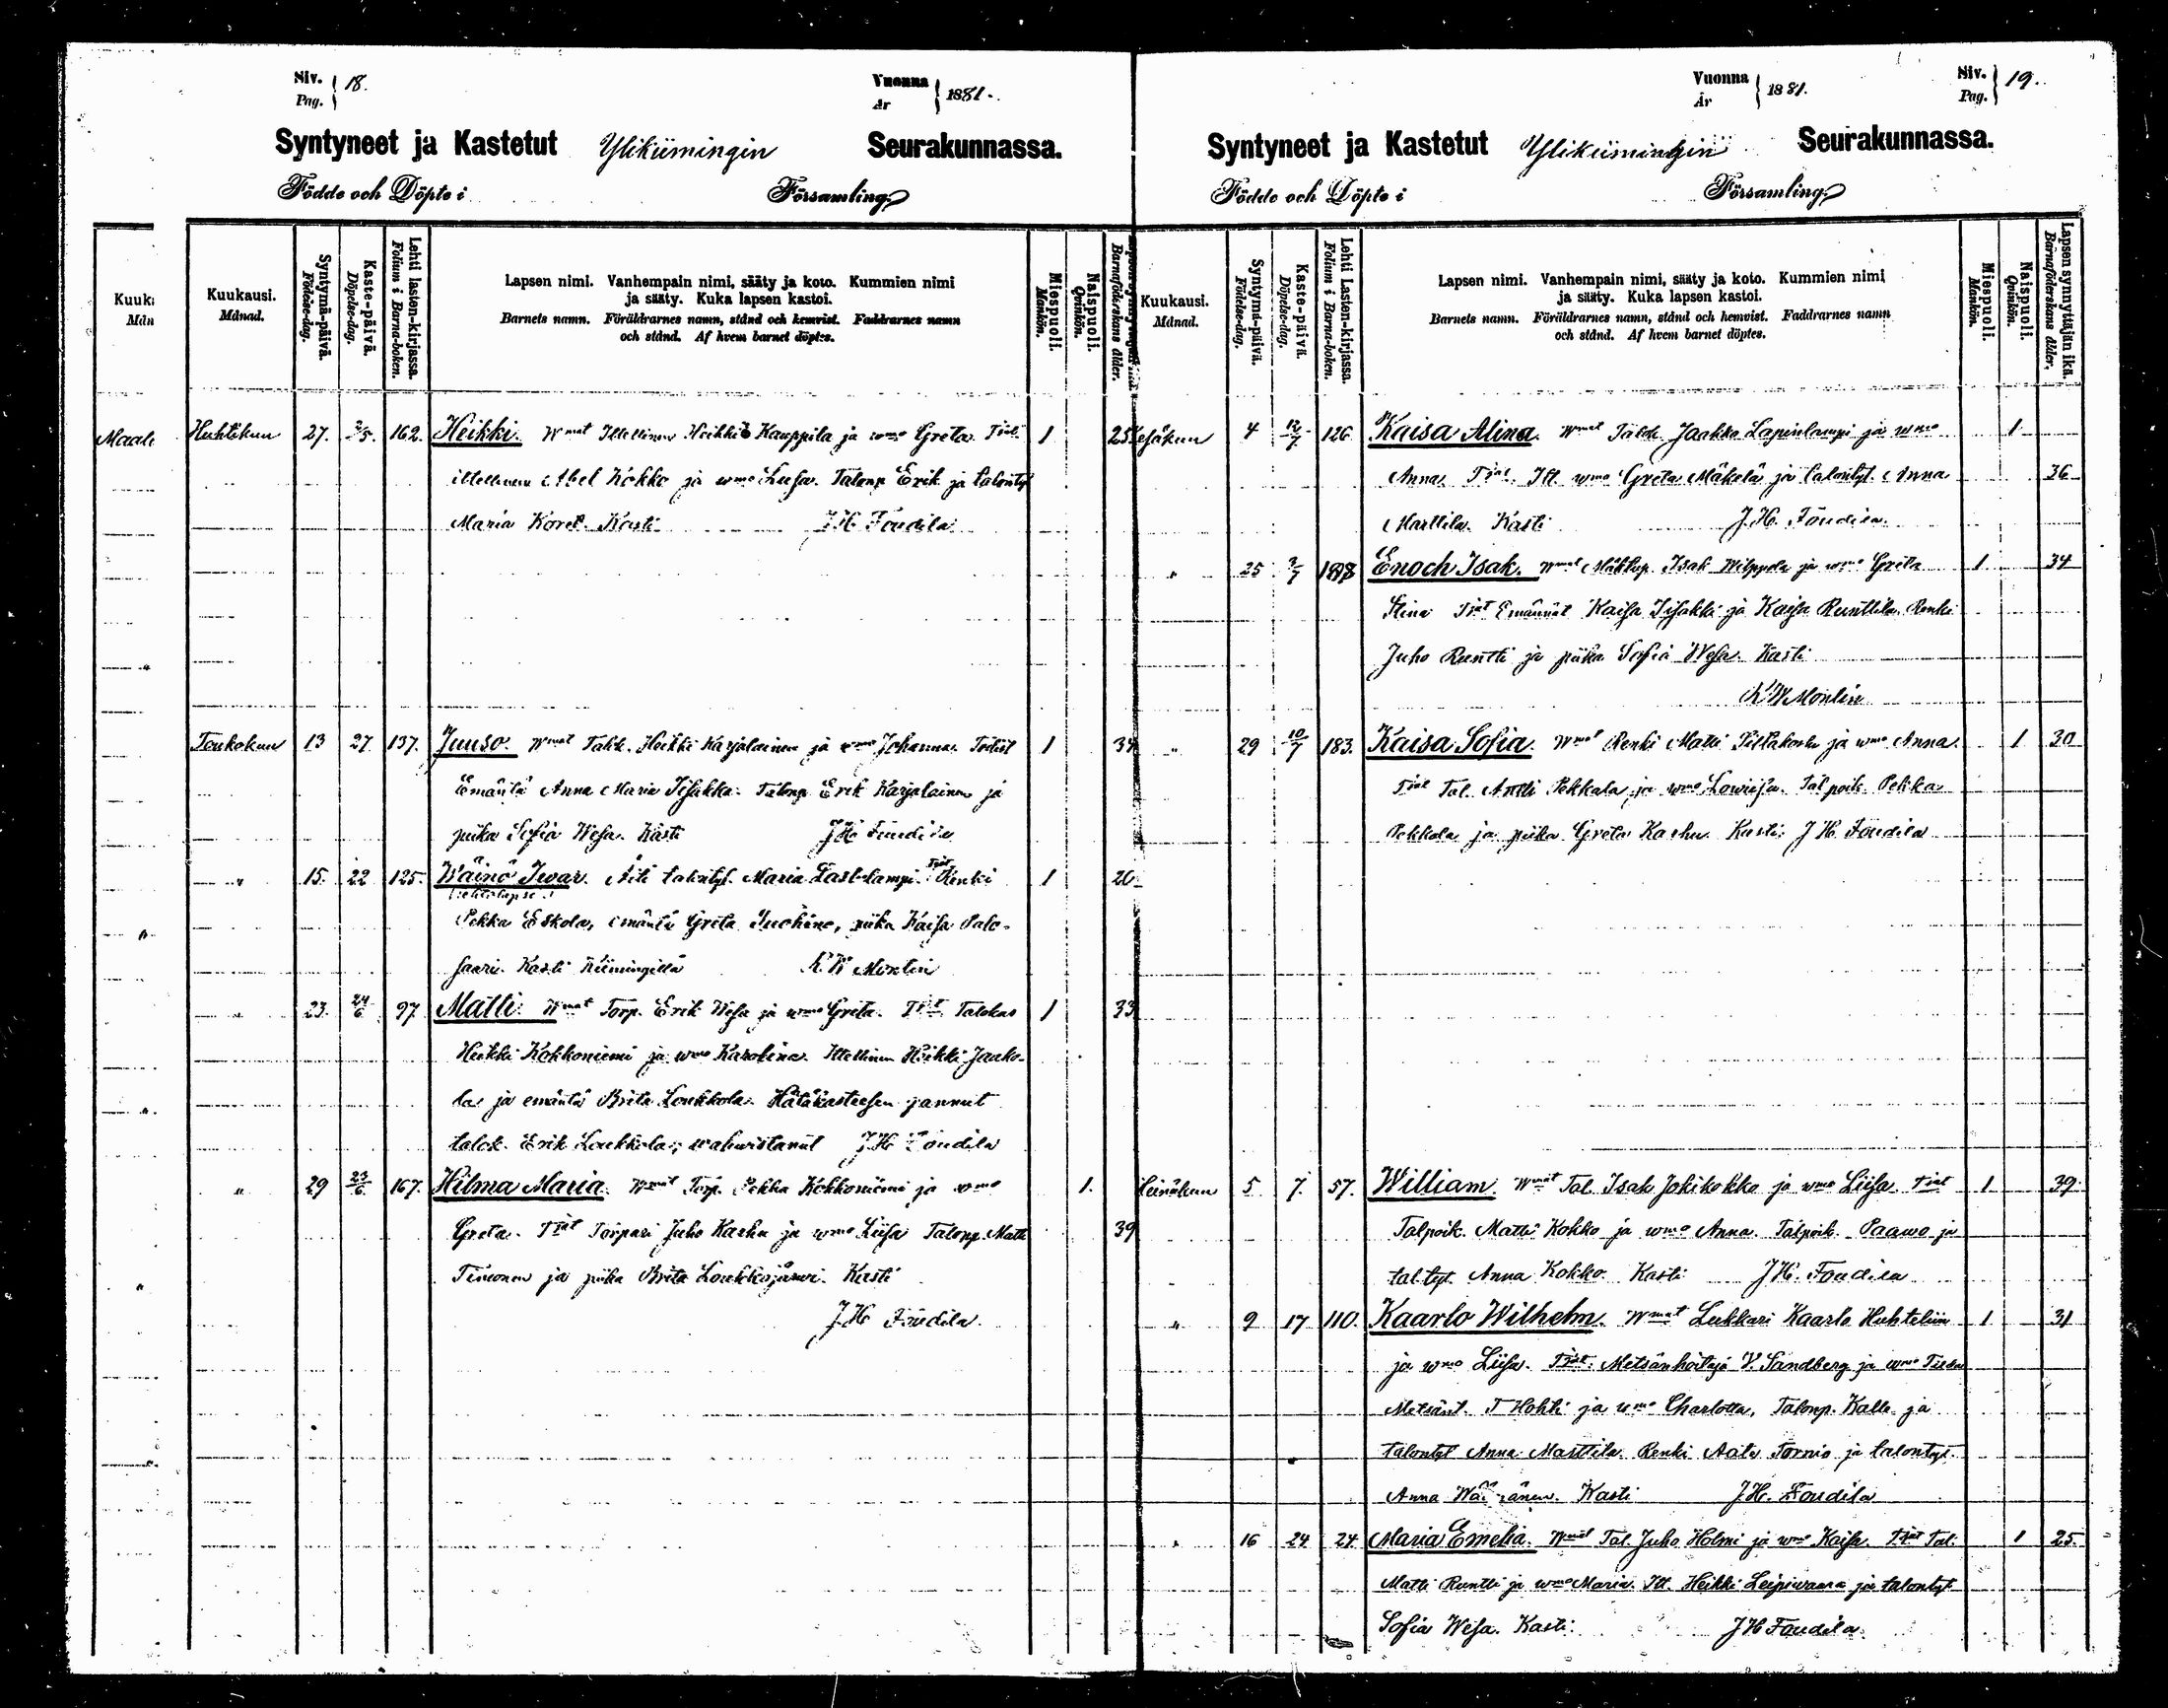 Niv. Pag. } 18.
Vuonna År } 1881.
Syntyneet ja Kastetut Ylikiimingin Seurakunnassa.
Födde och Döpte i Församling.
Kuukausi. Månad.
Syntymä-päivä. Födelse-dag.
Kaste-päivä. Döpelse-dag.
Lehti lasten-kirjassa. Folium i Barna-boken.
Lapsen nimi. Vanhempain nimi, sääty ja koto. Kummien nimi
ja sääty. Kuka lapsen kastoi.
Barnets namn. Föräldrarnes namn, stånd och hemvist. Faddrarnes namn
och stånd. Af hvem barnet döptes.
Miespuoli. Mankön.
Naispuoli. Qvinkön.
Barnaföderskans ålder.
Maali
Huhtikuu 27. 2/5. 162. Heikki. Wmat Itellinen Heikki Kauppila ja wmo Greta. Tjat 1 25
itellinen Abel Kokko ja wmo Luisa. Talonp Erik ja talontyt
Maria Koret. Kasti J H Foudila
Toukokuu 13 27 137. Juuso. Wmat Talk. Heikki Karjalainen ja wmo Johanna. Todist 1
Emäntä Anna Maria Iisakka. Talonp Erik Karjalainen ja
piika Sofia Wesa. Kasti J H Foudila
" 15. 22 125. Wäinö Iwar. Äiti talontyt. Maria Lastulampi. Tjat Renki 1 26
Pekka Eskola, emäntä Greta Juohino, piika Kaisa Palo-
saari. Kasti Kiimingillä K. W Montin
" 23. 24/6 97 Matti. Wmat Torp. Erik Wesa ja wmo Greta. Tjat Talokas 1 33
Heikki Kokkoniemi ja wmo Karolina. Itellinen Heikki Jauko-
la ja emäntä Brita Loukkola. Hätäkasteesen pannut
talok. Erik Loukkola; wahwistanut J H Foudila
" 29 23/6 167. Hilma Maria. Wmat Torp. Pekka Kokkoniemi ja wmo 1.
Greta. Tjat Torpari Juho Karhu ja wmo Liisa Talonp Matti 39
Timonen ja piika Brita Loukkojärwi. Kasti
J H Foudila.
Vuonna År } 1881.
Niv. Pag. } 19.
Syntyneet ja Kastetut Ylikiimingin Seurakunnassa.
Födde och Döpte i Församling.
Kuukausi. Månad.
Syntymä-päivä. Födelse-dag.
Kaste-päivä. Döpelse-dag.
Lehti Lasten-kirjassa. Folium i Barna-boken.
Lapsen nimi. Vanhempain nimi, sääty ja koto. Kummien nimi
ja sääty. Kuka lapsen kastoi.
Barnets namn. Föräldrarnes namn, stånd och hemvist. Faddrarnes namn
och stånd. Af hvem barnet döptes.
Miespuoli. Mankön.
Naispuoli. Qvinkön.
Lapsen synnyttäjän ikä. Barnaföderskans ålder.
Kesäkuu 4 12/7 126 Kaisa Alina. Wmat Talok Jaakko Lapinlampi ja wmo 1
Anna. Tjat. Itl. wmo Greta Mäkelä ja talontyt. Anna 36
Marttila. Kasti J. H. Foudila.
" 25 3/7 Enoch Isak. Wmat Mäkitup. Isak Wilppola ja wmo Greta 1 34
Stina Tjat Emännät Kaisa Iisakki ja Kaisa Runttila. Renki
Juho Runtti ja piika Sofia Wesa. Kasti
K W Montin
" 29 10/7 183. Kaisa Sofia. Wmat Renki Matti Siltakoski ja wmo Anna. 1 30
Tjat Tal. Antti Pekkala ja wmo Lowiisa. Talpoik. Pekka
Pekkala ja piika Greta Karhu Kasti: J H Foudila
Heinäkuu 5 7. 57. William. Wmat Tal. Isak Jokikokko ja wmo Liisa. Tjat 1 39.
Talpoik. Matti Kokko ja wmo Anna. Talpoik. Paawo ja
tal.tyt. Anna Kokko. Kasti J H. Foudila
" 9 17 110. Kaarlo Wilhelm. Wmat Lukkari Kaarlo Huhteliin 1 31
ja wmo Liisa. Tjat. Metsänhoitaja V. Sandberg ja wmo
Metsänt. T Hohti ja wmo Charlotta, Talonp. Kalle ja
talontyt Anna Marttila. Renki Aato Tornio ja talontyt.
Anna Kasti J. H. Foudila
" 16 24 24 Maria Emelia. Wmat Tal. Juho Holmi ja wmo Kaisa. Tjat Tal. 1 25.
Matti Runtti ja wmo Maria. Itl. Heikki Leipiwaara ja talontyt
Sofia Wesa. Kasti. J H Foudila.